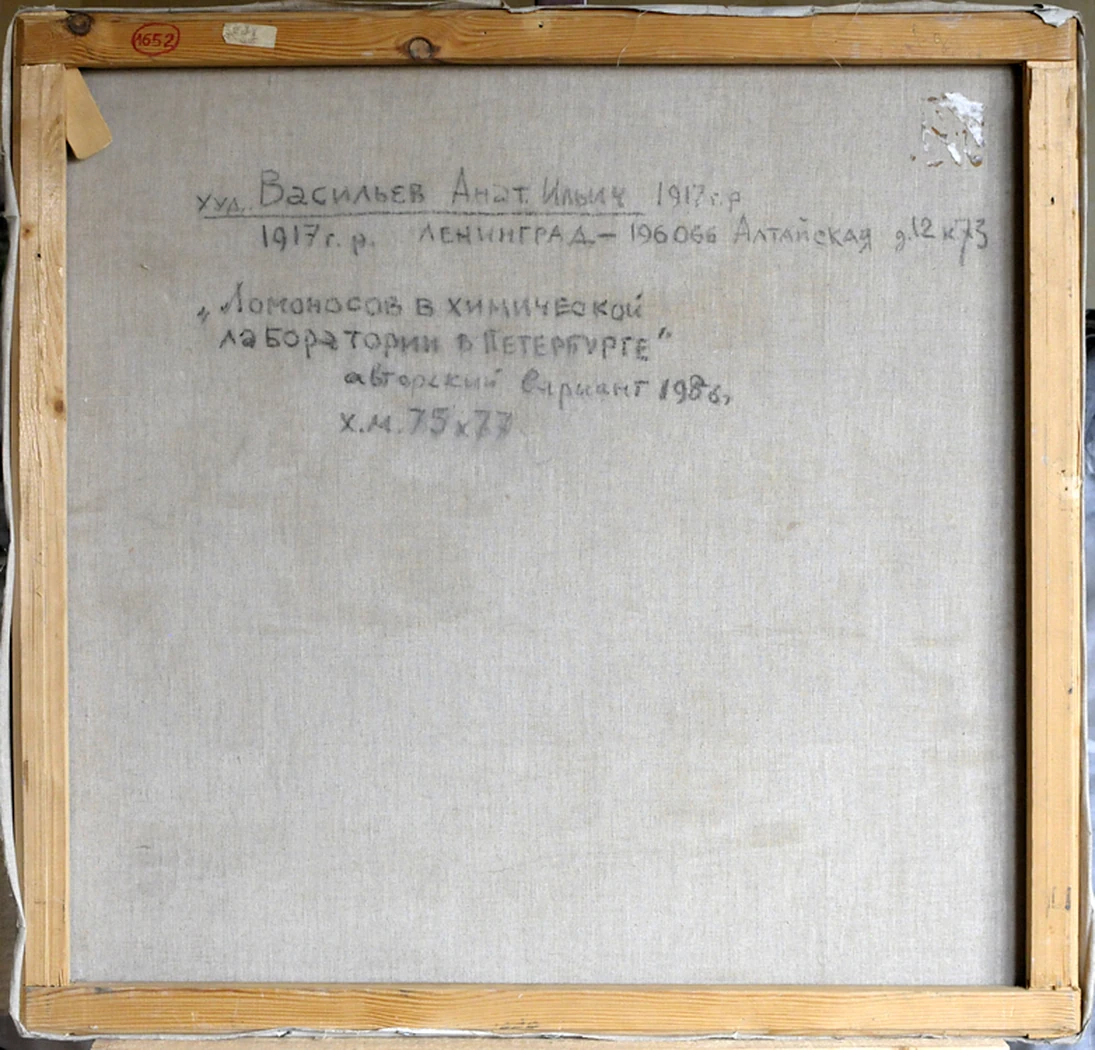 1652
худ. Васильев Анат. Ильич 1917 г. р
1917 г. р. ЛЕНИНГРАД – 196066 Алтайская д. 12 к 73
„Ломоносов в химической
лаборатории в Петербурге”
авторский вариант 1986,
х.м. 75 x 77